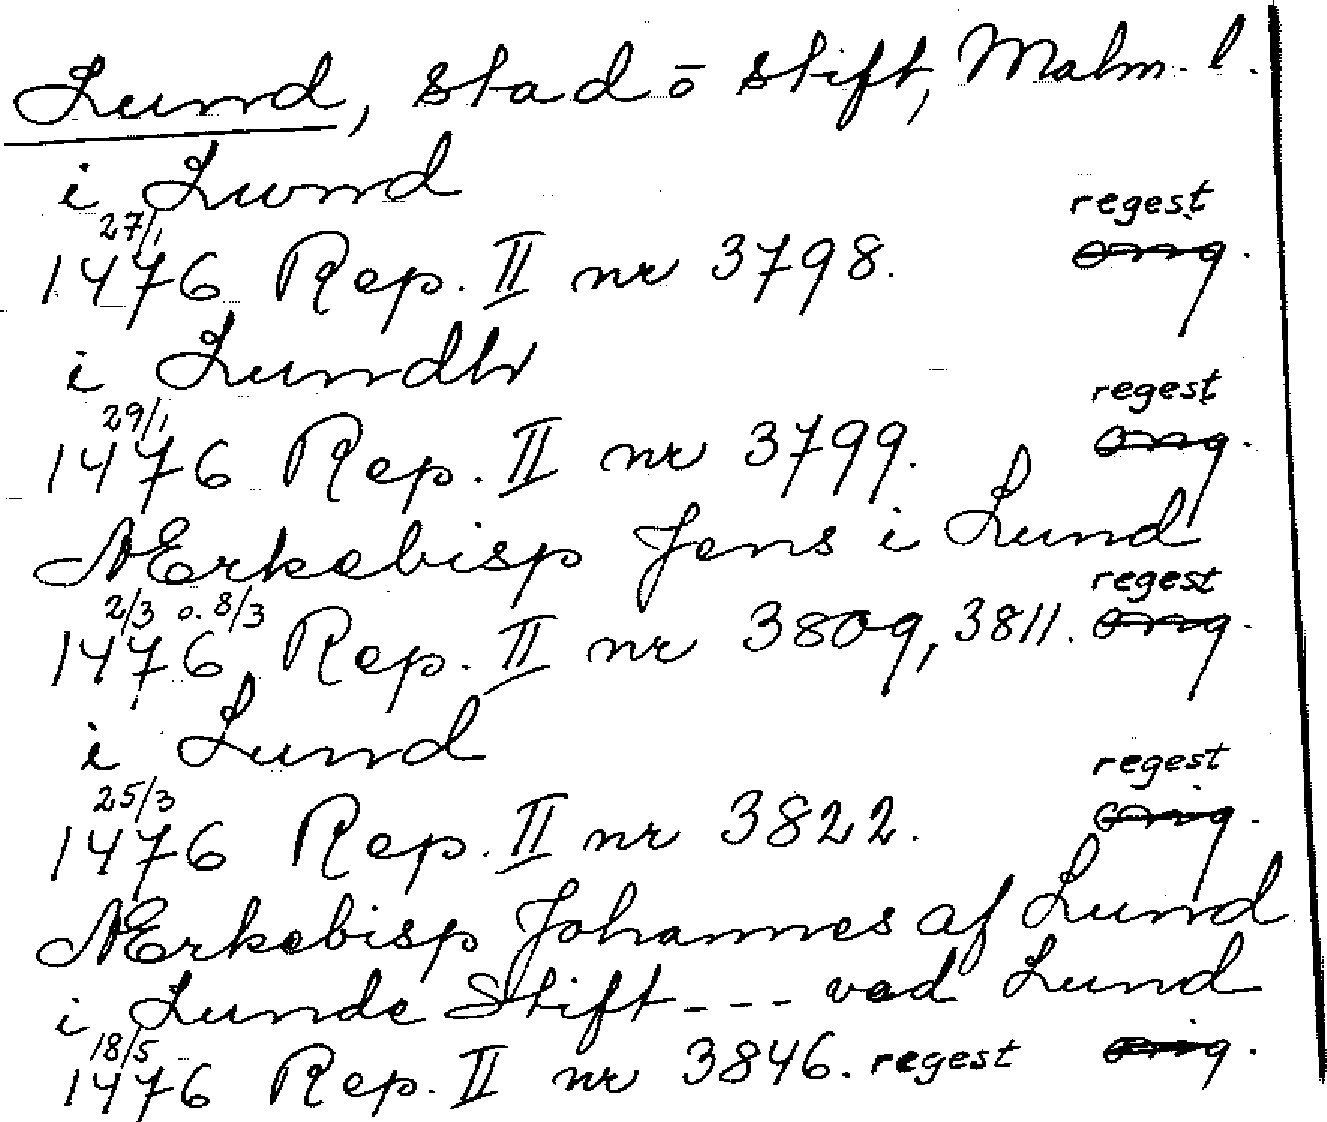 Lund, stad ō stift, Malm. l.
i Lund
27/1 regest
1476 Rep. II nr 3798. orig.
i Lundh
29/1 regest
1476 Rep. II nr 3799. orig.
Ærkebisp Jens i Lund
2/3 o. 8/3 regest
1476 Rep. II nr 3809, 3811. orig.
i Lund
25/3 regest
1476 Rep. II nr 3822. orig.
Ærkebisp Johannes af Lund
i Lunde Stift --- ved Lund
18/5
1476 Rep. II nr 3846. regest orig.